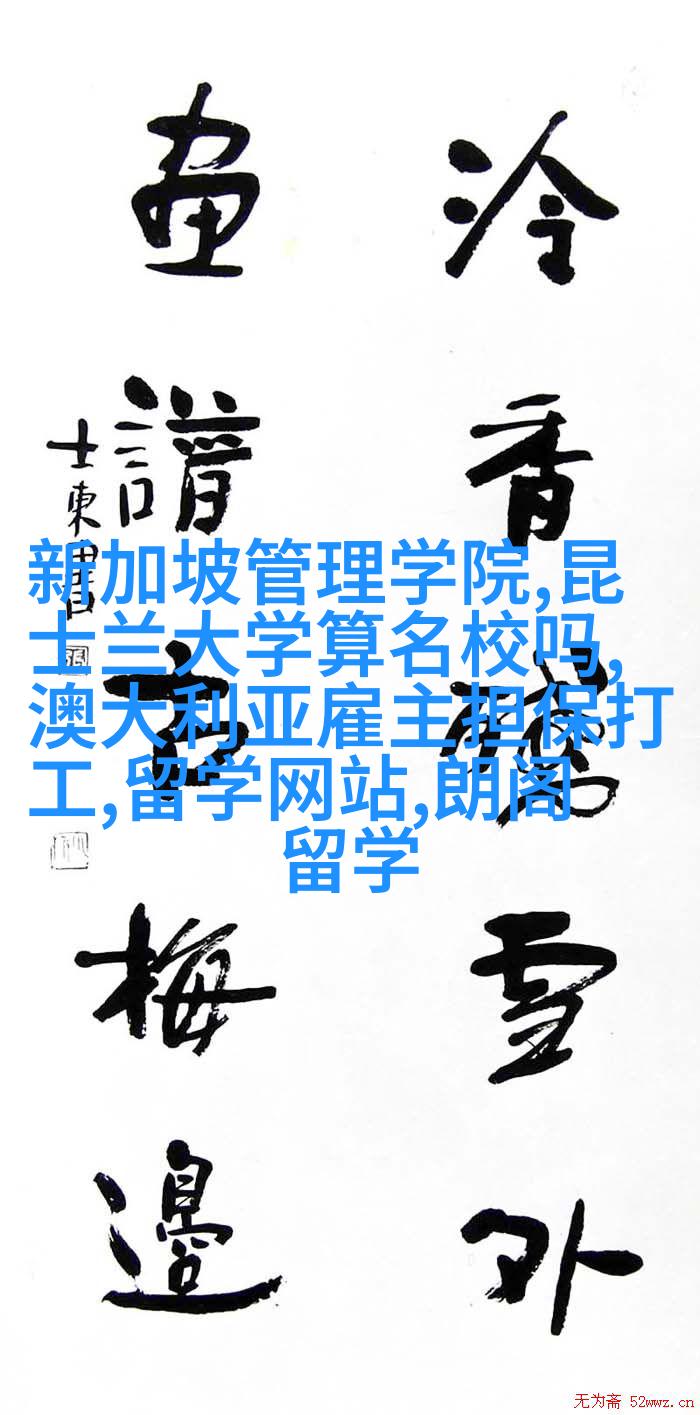 冷香雪外
畫譜梅邊
士東書
新加坡管理学院,昆
士兰大学算名校吗,
澳大利亚雇主担保打
工,留学网站,朗阁
留学
无为斋 52wwz.cn